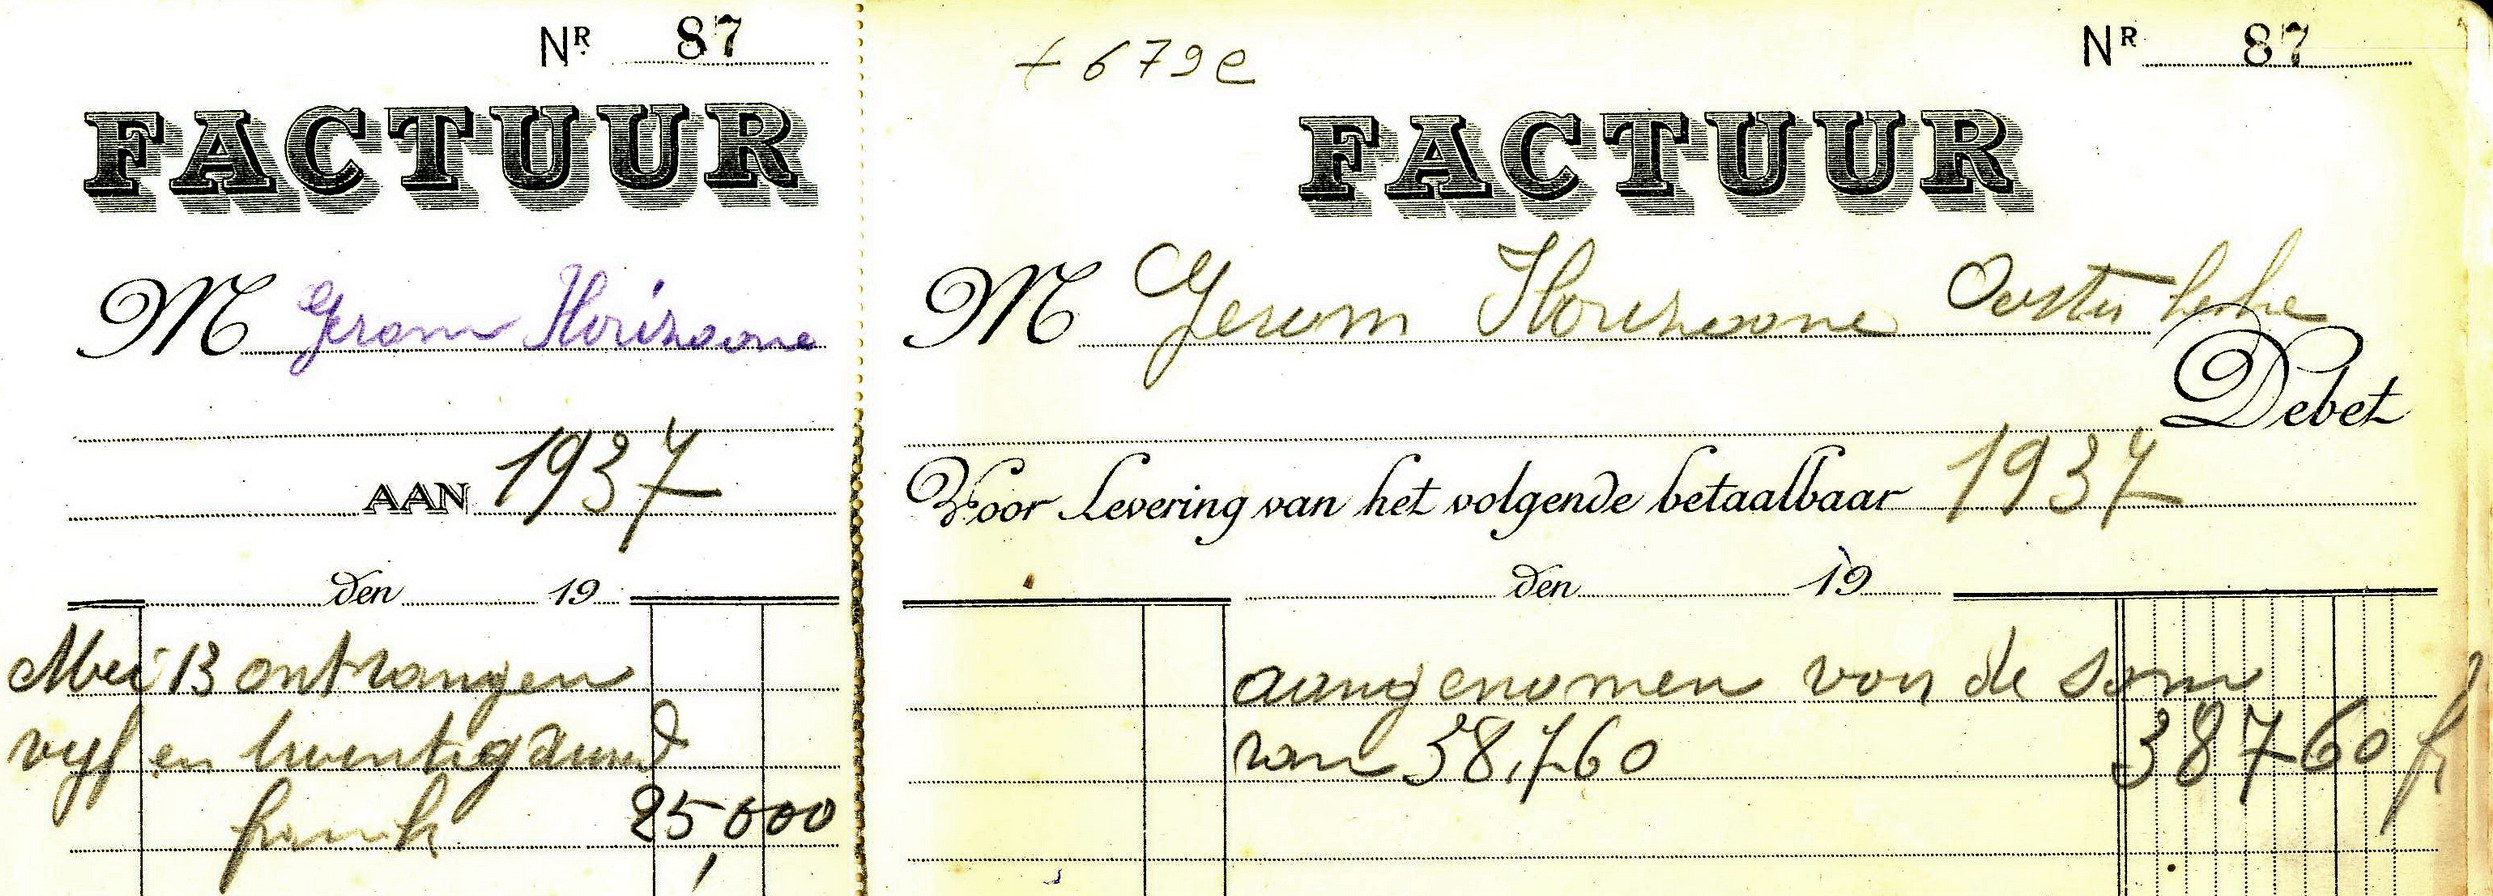 NR 87
FACTUUR
M Gerom Horizoone
AAN 1937
den 19
Mei 13 ontvangen
vijf en twentig duized
frank 25,000
+ 679e
NR 87
FACTUUR
M Jerom Horizoone
Debet
Voor Levering van het volgende betaalbaar 1937
den 19
aangenomen voor de som
van 38,760 38760 fr